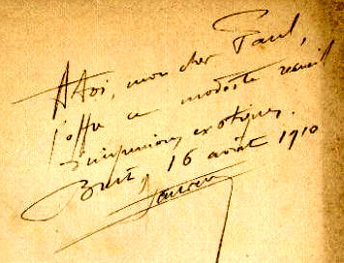 A toi, mon cher Paul,
j'offre ce modeste recueil
d'impressions exotiques.
Brest, 16 août 1910